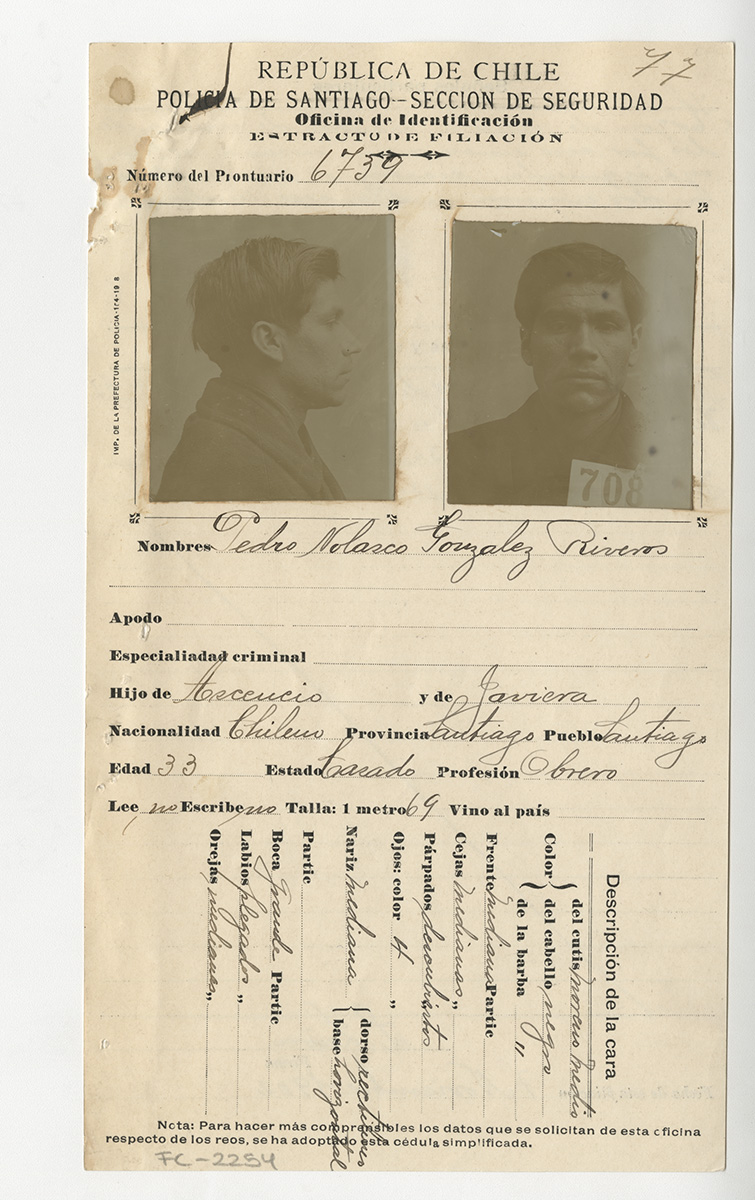 77
REPÚBLICA DE CHILE
POLICIA DE SANTIAGO--SECCION DE SEGURIDAD
Oficina de Identificación
ESTRACTO DE FILIACIÓN
Número del Prontuario 6739
IMP. DE LA PREFECTURA DE POLICIA-104-19 8
708
Nombres Pedro Nolasco Gonzalez Riveros
Apodo
Especialiadad criminal
Hijo de Ascencio y de Javiera
Nacionalidad Chileno Provincia Santiago Pueblo Santiago
Edad 33 Estado Casado Profesión Obrero
Lee no Escribe no Talla: 1 metro 69 Vino al país
Descripción de la cara
Color { del cutis moreno medio
del cabello negro
de la barba "
Frente mediana Partic
Cejas medianas "
Párpados descubiertos
Ojos: color 4 "
Nariz mediana { dorso rectilineo
base horizontal
Partic
Boca grande Partic
Labios plegados "
Orejas medianas "
Nota: Para hacer más comprensibles los datos que se solicitan de esta oficina
respecto de los reos, se ha adoptado esta cédula simplificada.
FC-2254